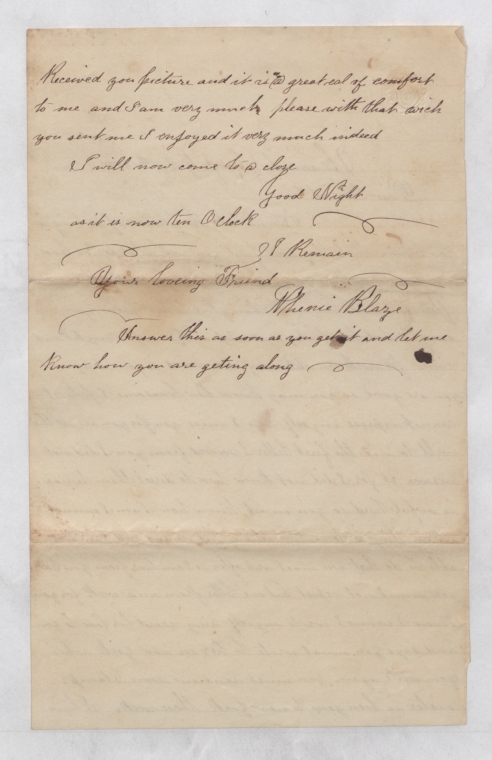 Received you picture and it is a great eal of comfort
to me and I am very much please with that wich
you sent me I enjoyed it very much indeed
I will now come to a cloze
Good Night
as it is now ten O clock
I Remain
Your loveing Friend
Phenie Blaze
Answer this as soon as you get it and let me
Know how you are geting along